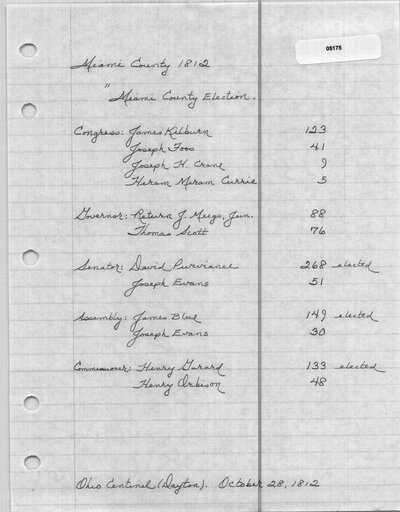 05175
Miami County 1812
" Miami County Election.
Congress: James Kilburn 123
Joseph Foos 41
Joseph H. Crane 9
Heram Meram Currie 5
Governor: Return J. Meigs, Jun. 88
Thomas Scott 76
Senator: David Purviance 268 elected
Joseph Evans 51
Assembly: James Blue 149 elected
Joseph Evans 30
Commissioner: Henry Garard 133 elected
Henry Orbison 48
Ohio Centinel (Dayton). October 28, 1812